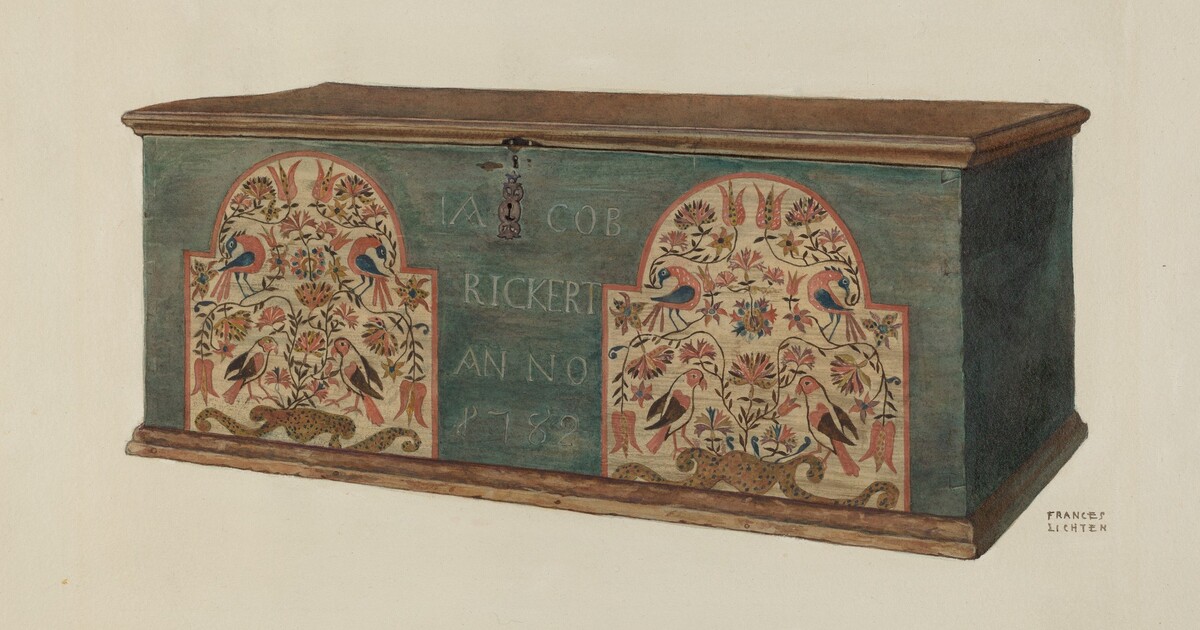 IA COB
RICKERT
AN NO
1782
FRANCES
LICHTEN